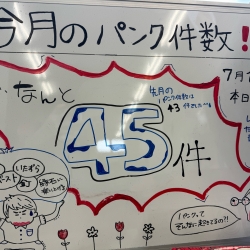 今月のパンク件数!!
7月
本日
なんと
先月の
パンク件数は
43件だったから
45件
いたずら
釘
パンクって
そんなに起きてるの?!